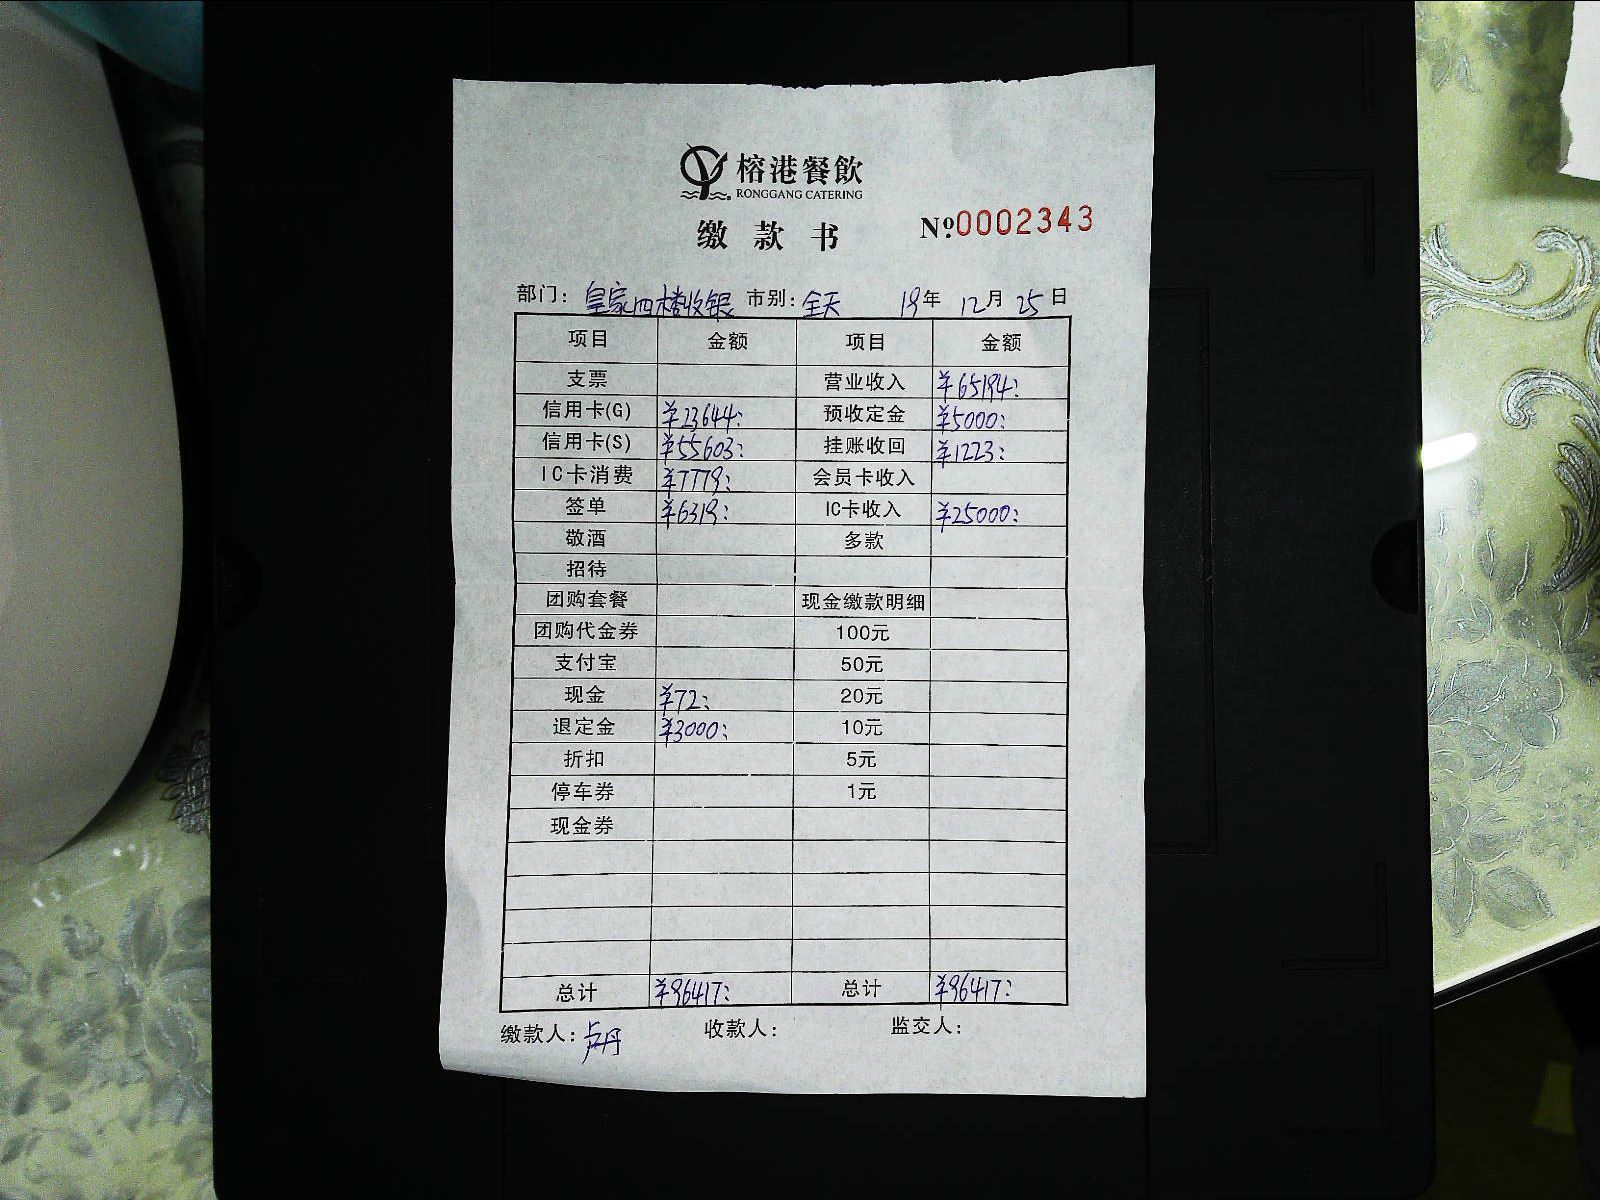 榕港餐飲
RONGGANG CATERING
缴款书 №0002343
部门：皇家四楼收银 市别：全天 19年 12月 25日
项目 金额 项目 金额
支票 营业收入 ¥65194:
信用卡(G) ¥23644: 预收定金 ¥5000:
信用卡(S) ¥55603: 挂账收回 ¥1223:
IC卡消费 ¥7779: 会员卡收入
签单 ¥6319: IC卡收入 ¥25000:
敬酒 多款
招待
团购套餐 现金缴款明细
团购代金券 100元
支付宝 50元
现金 ¥72: 20元
退定金 ¥3000: 10元
折扣 5元
停车券 1元
现金券
总计 ¥96417: 总计 ¥96417:
缴款人：卢丹 收款人： 监交人：